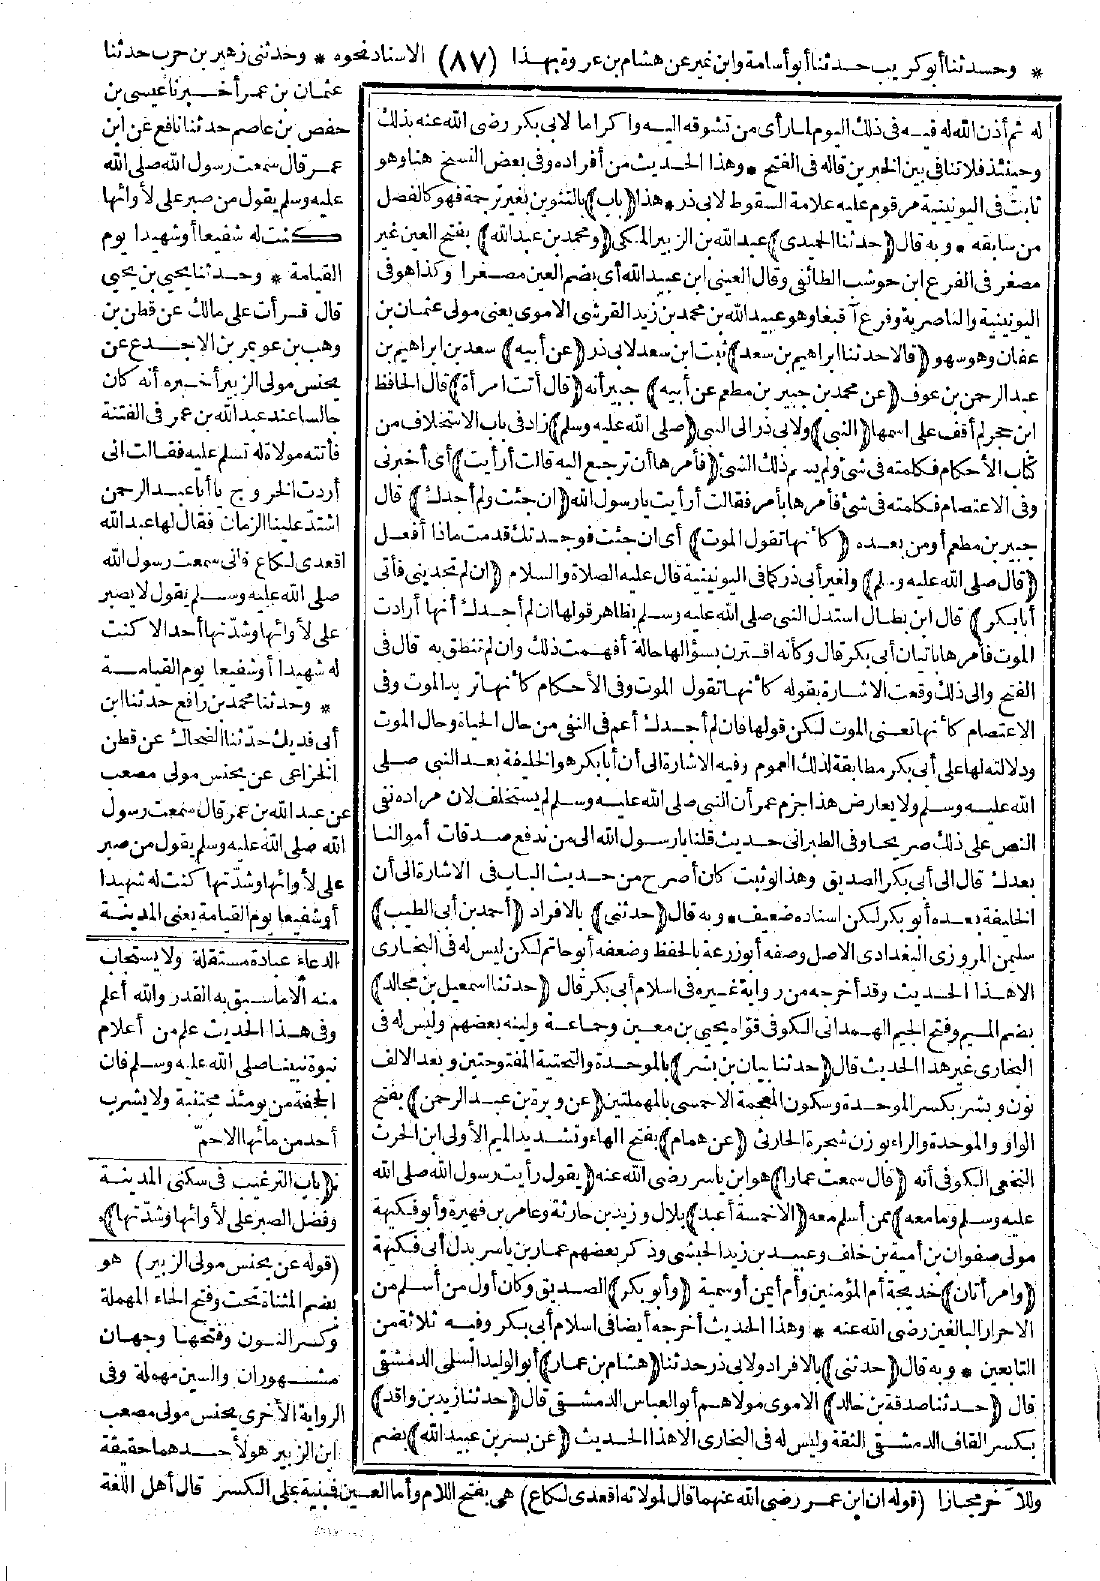 * وحدثنا أبو كريب حدثنا أبو أسامة وابن نمير عن هشام بن عروة بهذا (٨٧) الاسناد نحوه * وحدثنى زهير بن حرب حدثنا
له ثم أذن الله له فيه فى ذلك اليوم لما رأى من تشوقه اليه واكراما لابى بكر رضى الله عنه بذلك
وحينئذ فلا تنافى بين الخبرين قاله فى الفتح * وهذا الحديث من أفراده وفى بعض النسخ هنا وهو
ثابت فى اليونينية مرقوم عليه علامة السقوط لابى ذر * هذا (باب) بالتنوين بغير ترجمة فهو كالفصل
من سابقه * وبه قال (حدثنا الحميدى) عبد الله بن الزبير المكى (ومحمد بن عبد الله) بفتح العين غير
مصغر فى الفرع ابن حوشب الطائفى وقال العينى ابن عبيد الله أى بضم العين مصغرا وكذا هو فى
اليونينية والناصرية وفرع آقبغا وهو عبيد الله بن محمد بن زيد القرشى الاموى يعنى مولى عثمان بن
عفان وهو سهو (قالا حدثنا ابراهيم بن سعد) ثبت ابن سعد لابى ذر (عن أبيه) سعد بن ابراهيم بن
عبد الرحمن بن عوف (عن محمد بن جبير بن مطعم عن أبيه) جبير أنه (قال أتت امرأة) قال الحافظ
ابن حجر لم أقف على اسمها (النبى) ولابى ذر الى النبى (صلى الله عليه وسلم) زاد فى باب الاستخلاف من
كتاب الأحكام فكلمته فى شئ ولم يسم ذلك الشئ (فأمرها أن ترجع اليه قالت أرأيت) أى أخبرنى
وفى الاعتصام فكلمته فى شئ فأمرها بأمر فقالت أرأيت يا رسول الله (ان جئت ولم أجدك) قال
جبير بن مطعم أو من بعده (كأنها تقول الموت) أى ان جئت فوجدتك قدمت ماذا أفعل
(قال صلى الله عليه وسلم) ولغير أبى ذر كما فى اليونينية قال عليه الصلاة والسلام (ان لم تجدينى فأتى
أبا بكر) قال ابن بطال استدل النبى صلى الله عليه وسلم بظاهر قولها ان لم أجدك أنها أرادت
الموت فأمرها باتيان أبى بكر قال وكأنه اقترن بسؤالها حالة أفهمت ذلك وان لم تنطق به قال فى
الفتح والى ذلك وقعت الاشارة بقوله كأنها تقول الموت وفى الأحكام كأنها تريد الموت وفى
الاعتصام كأنها تعنى الموت لكن قولها فان لم أجدك أعم فى النفى من حال الحياة وحال الموت
ودلالته لها على أبى بكر مطابقة لذلك العموم وفيه الاشارة الى أن أبا بكر هو الخليفة بعد النبى صلى
الله عليه وسلم ولا يعارض هذا جزم عمر أن النبى صلى الله عليه وسلم لم يستخلف لان مراده نفى
النص على ذلك صريحا وفى الطبرانى حديث قلنا يا رسول الله الى من ندفع صدقات أموالنا
بعدك قال الى أبى بكر الصديق وهذا لو ثبت كان أصرح من حديث الباب فى الاشارة الى أن
الخليفة بعده أبو بكر لكن اسناده ضعيف * وبه قال (حدثنى) بالافراد (أحمد بن أبى الطيب)
سليمن المروزى البغدادى الاصل وصفه أبو زرعة بالحفظ وضعفه أبو حاتم لكن ليس له فى البخارى
الا هذا الحديث وقد أخرجه من رواية غيره فى اسلام أبى بكر قال (حدثنا اسمعيل بن مجالد)
بضم الميم وفتح الجيم الهمدانى الكوفى قواه يحيى بن معين وجماعة ولينه بعضهم وليس له فى
البخارى غير هذا الحديث قال (حدثنا بيان بن بشر) بالموحدة والتحتية المفتوحتين وبعد الالف
نون وبشر بكسر الموحدة وسكون المعجمة الاحمسى بالمهملتين (عن وبرة بن عبد الرحمن) بفتح
الواو والموحدة والراء بوزن شجرة الحارثى (عن همام) بفتح الهاء وتشديد الميم الأولى ابن الحرث
النخعى الكوفى أنه (قال سمعت عمارا) هو ابن ياسر رضى الله عنه (يقول رأيت رسول الله صلى الله
عليه وسلم وما معه) ممن أسلم معه (الا خمسة أعبد) بلال وزيد بن حارثة وعامر بن فهيرة وأبو فكيهة
مولى صفوان بن أمية بن خلف وعبيد بن زيد الحبشى وذكر بعضهم عمار بن ياسر بدل أبى فكيهة
(وامرأتان) خديجة أم المؤمنين وأم أيمن أو سمية (وأبو بكر) الصديق وكان أول من أسلم من
الاحرار البالغين رضى الله عنه * وهذا الحديث أخرجه أيضا فى اسلام أبى بكر وفيه ثلاثة من
التابعين * وبه قال (حدثنى) بالافراد ولابى ذر حدثنا (هشام بن عمار) أبو الوليد السلمى الدمشقى
قال (حدثنا صدقة بن خالد) الاموى مولاهم أبو العباس الدمشقى قال (حدثنا زيد بن واقد)
بكسر القاف الدمشقى الثقة وليس له فى البخارى الا هذا الحديث (عن بسر بن عبيد الله) بضم
عثمان بن عمر أخبرنا عيسى بن
حفص بن عاصم حدثنا نافع عن ابن
عمر قال سمعت رسول الله صلى الله
عليه وسلم يقول من صبر على لأوائها
كنت له شفيعا أو شهيدا يوم
القيامة * وحدثنا يحيى بن يحيى
قال قرأت على مالك عن قطن بن
وهب بن عويمر بن الاجدع عن
يحنس مولى الزبير أخبره أنه كان
جالسا عند عبد الله بن عمر فى الفتنة
فأتته مولاة له تسلم عليه فقالت انى
أردت الخروج يا أبا عبد الرحمن
اشتد علينا الزمان فقال لها عبد الله
اقعدى لكاع فانى سمعت رسول الله
صلى الله عليه وسلم يقول لا يصبر
على لأوائها وشدتها أحد الا كنت
له شهيدا أو شفيعا يوم القيامة
* وحدثنا محمد بن رافع حدثنا ابن
أبى فديك حدثنا الضحاك عن قطن
الخزاعى عن يحنس مولى مصعب
عن عبد الله بن عمر قال سمعت رسول
الله صلى الله عليه وسلم يقول من صبر
على لأوائها وشدتها كنت له شهيدا
أو شفيعا يوم القيامة يعنى المدينة
الدعاء عبادة مستقلة ولا يستجاب
منه الا ما سبق به القدر والله أعلم
وفى هذا الحديث علم من أعلام
نبوة نبينا صلى الله عليه وسلم فان
الجحفة من يومئذ مجتنبة ولا يشرب
أحد من مائها الا حمّ
(باب الترغيب فى سكنى المدينة
وفضل الصبر على لأوائها وشدتها)
(قوله عن يحنس مولى الزبير) هو
بضم المثناة تحت وفتح الحاء المهملة
وكسر النون وفتحها وجهان
مشهوران والسين مهملة وفى
الرواية الأخرى يحنس مولى مصعب
ابن الزبير هو لأحدهما حقيقة
وللآخر مجازا (قوله ان ابن عمر رضى الله عنهما قال لمولاته اقعدى لكاع) هى بفتح اللام وأما العين فمبنية على الكسر قال أهل اللغة